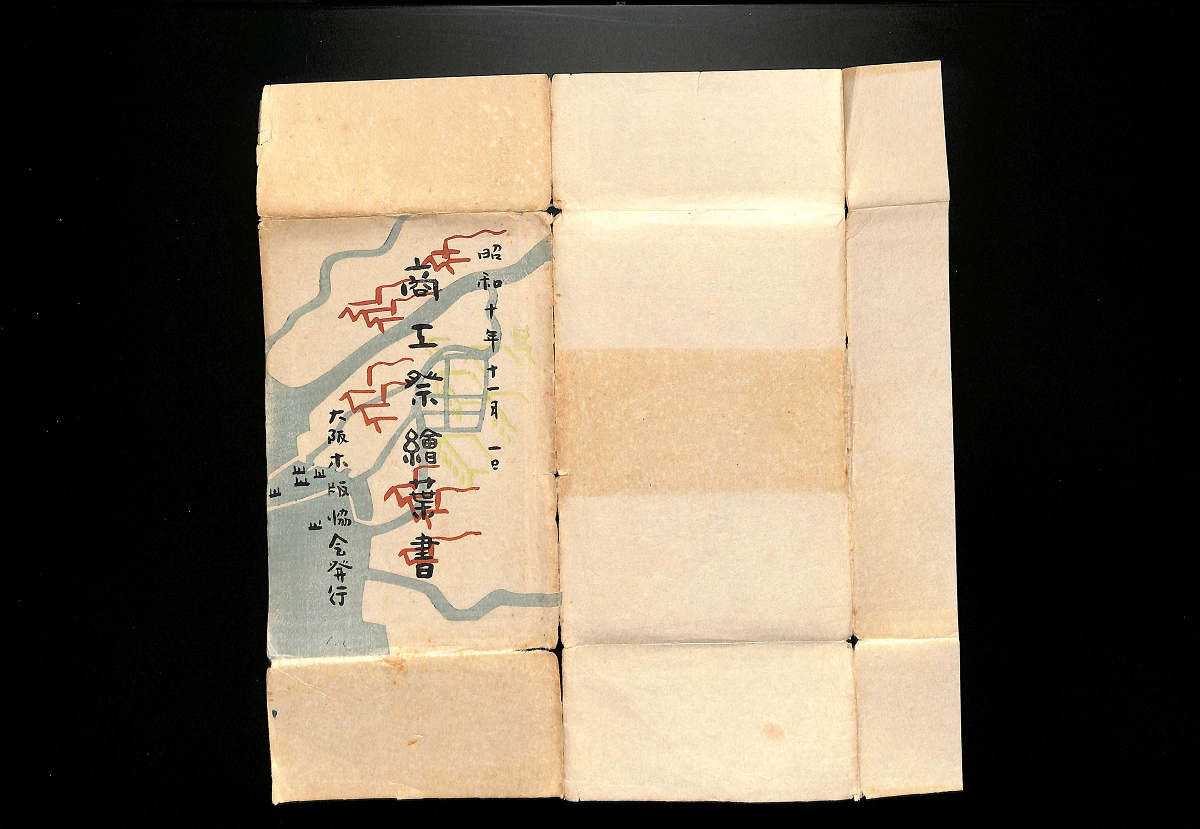 昭和十年十一月一日
商工祭繪葉書
大阪木版協会発行